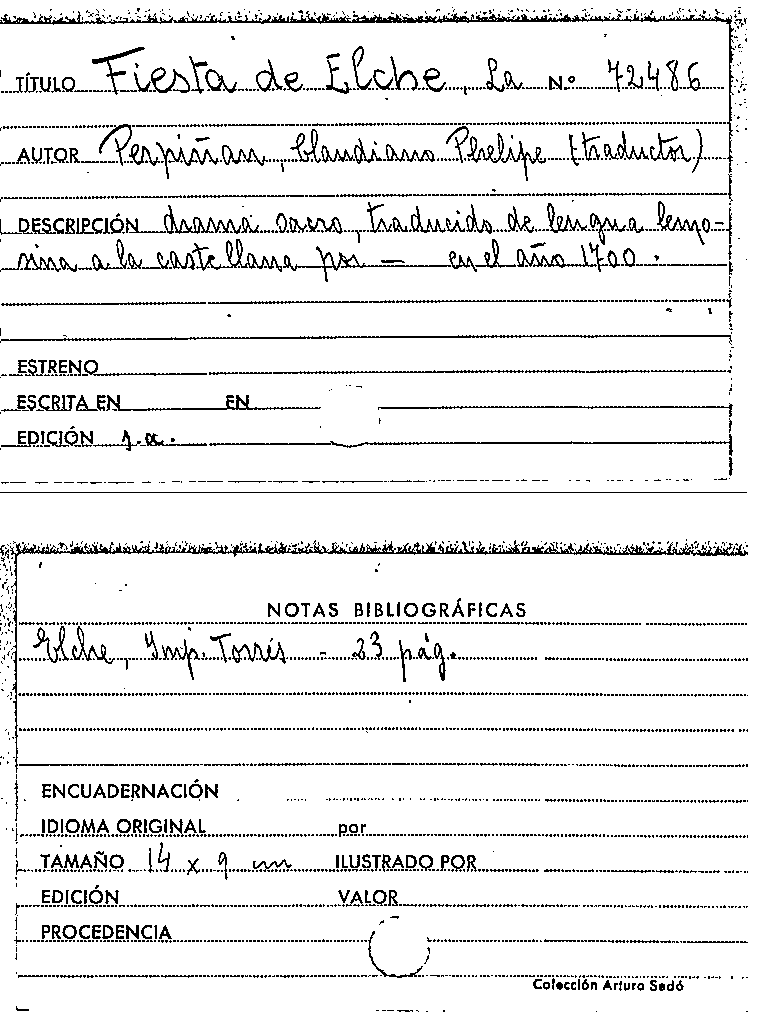 TÍTULO Fiesta de Elche, La Nº 72486
AUTOR Perpiñan, Claudiano Phelipe (traductor)
DESCRIPCIÓN drama sacro, traducido de lengua lemo-
sina a la castellana por — en el año 1700.
ESTRENO
ESCRITA EN EN
EDICIÓN s.a.
NOTAS BIBLIOGRÁFICAS
Elche, Imp. Torrés - 23 pág.
ENCUADERNACIÓN
IDIOMA ORIGINAL por
TAMAÑO 14 x 9 cm ILUSTRADO POR
EDICIÓN VALOR
PROCEDENCIA
Colección Arturo Sedó